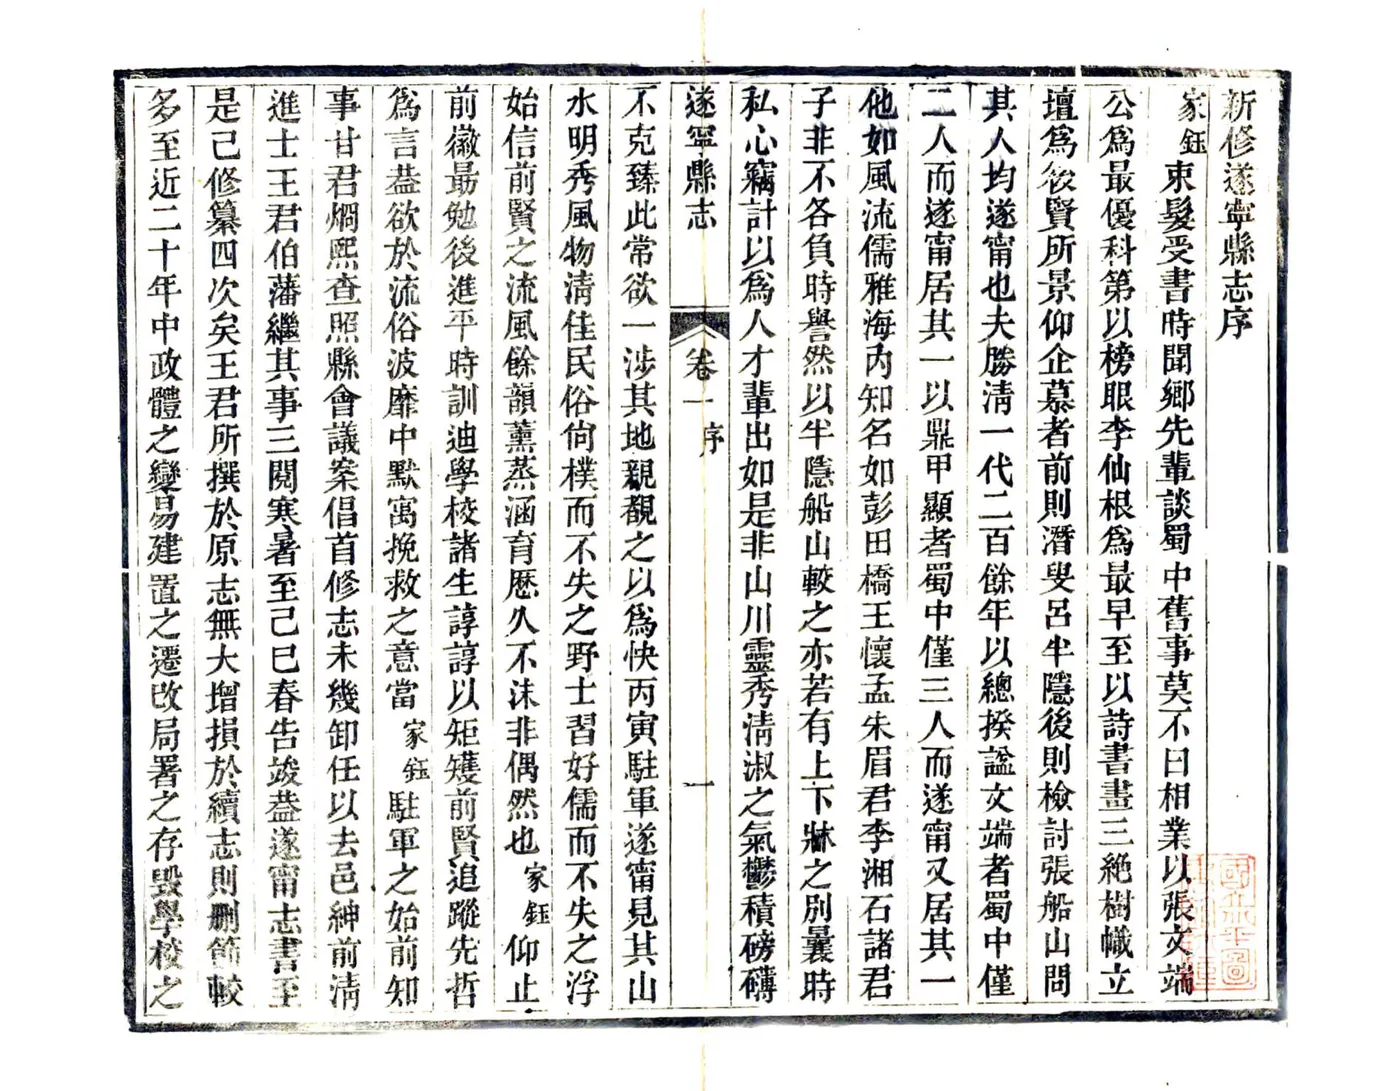 新修遂寧縣志序
家鈺束髮受書時聞鄉先輩談蜀中舊事莫不曰相業以張文端
公爲最優科第以榜眼李仙根爲最早至以詩書畫三絶樹幟立
壇爲後賢所景仰企慕者前則潛叟呂半隱後則檢討張船山問
其人均遂甯也夫勝淸一代二百餘年以總揆謚文端者蜀中僅
二人而遂甯居其一以鼎甲顯者蜀中僅三人而遂甯又居其一
他如風流儒雅海內知名如彭田橋王懷孟朱眉君李湘石諸君
子非不各負時譽然以半隱船山較之亦若有上下牀之別曩時
私心竊計以爲人才輩出如是非山川靈秀淸淑之氣鬱積磅礡
遂寧縣志
卷一
序
一
不克臻此常欲一涉其地親覩之以爲快丙寅駐軍遂甯見其山
水明秀風物淸佳民俗尙樸而不失之野士習好儒而不失之浮
始信前賢之流風餘韻薰蒸涵育歷久不沬非偶然也家鈺仰止
前徽最勉後進平時訓迪學校諸生諄諄以矩矱前賢追蹤先哲
爲言葢欲於流俗波靡中默寓挽救之意當家鈺駐軍之始前知
事甘君燜熙查照縣會議案倡首修志未幾卸任以去邑紳前淸
進士王君伯藩繼其事三閱寒暑至己巳春告竣葢遂甯志書至
是已修纂四次矣王君所撰於原志無大增損於續志則刪節較
多至近二十年中政體之變易建置之遷改局署之存毀學校之